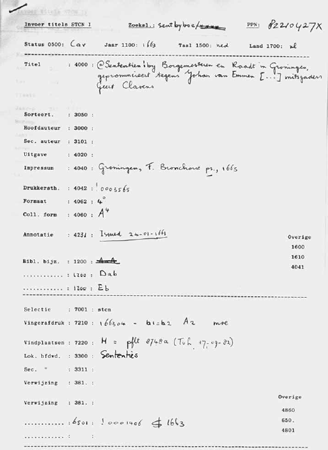 Invoer titels STCN I Zoeksl.: sent by boe/ PPN: 82210427X
Status 0500: Cav Jaar 1100: 1663 Taal 1500: ned Land 1700: nl
Titel : 4000 : @Sententien by Borgemesteren en Raadt in Groningen,
gepronuncieert tegens Johan van Emmen [...] mitsgaders
Geert Clasens
Sorteert. : 3050 :
Hoofdauteur : 3000 :
Sec. auteur : 3101 :
Uitgave : 4020 :
Impressum : 4040 : Groningen, F. Bronchorst pr., 1663
Drukkersth. : 4042 : !0003565
Formaat : 4062 : 4°
Coll. form : 4060 : A⁴
Annotatie : 4234 : Issued 24-01-1663
Overige
1600
1610
4041
Bibl. bijn. : 1200 :
............ : 1200 : Dab
............ : 1200 : Eb
Selectie : 7001 : stcn
Vingerafdruk : 7210 : 166304 - b1=b2 A2
Vindplaatsen : 7220 : H = pflt 8748a (Tch, 17-09-82)
Lok. bfded. : 3300 : Sententies
Sec. " : 3311 :
Verwijzing : 381. :
Verwijzing : 381. :
Overige
4860
650.
4801
............ : 6501 : !0001406 $ 1663